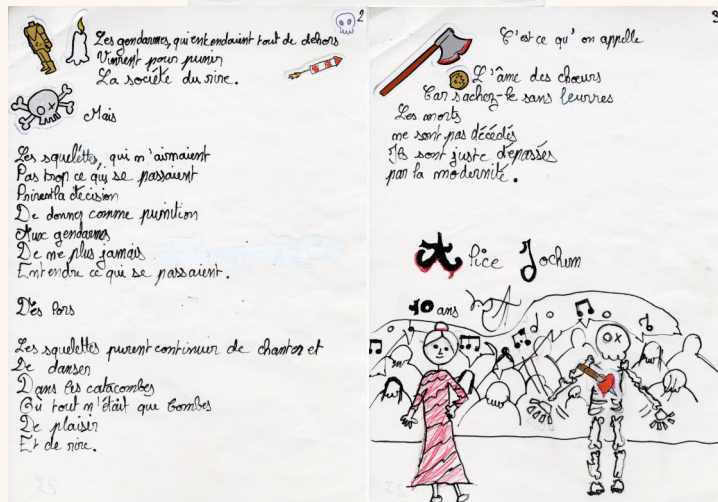 2
Les gendarmes, qui entendaient tout de dehors
Vinrent pour punir
La société du rire.
Mais
Les squelettes, qui n'aimaient
Pas trop ce qui se passaient
Prirent la décision
De donner comme punition
Aux gendarmes
De ne plus jamais
Entendre ce qui se passaient.
Dès lors
Les squelettes purent continuir de chanter et
De danser
Dans les catacombes
Où tout n'était que bombes
De plaisir
Et de rire.
3
C'est ce qu'on appelle
L'âme des chœurs
Car sachez-le sans leurres
Les morts
ne sont pas décédés
Ils sont juste dépassés
par la modernité.
Alice Jochum
10 ans